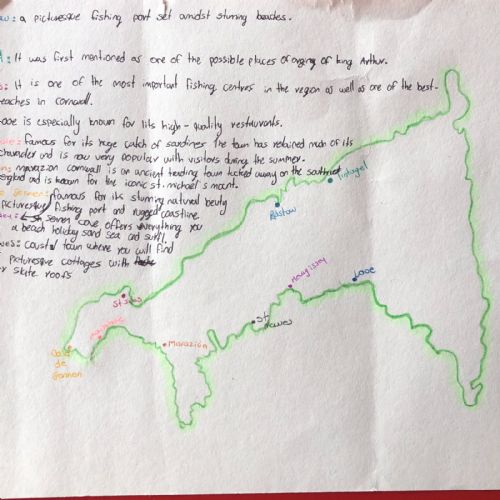 a picturesque fishing port set amidst stuning beaches.
It was first mentioned as one of the possible places of orging of king Arthur.
It is one of the most important fishing centres in the region as well as one of the best
beaches in cornwall.
Looe is especially known for lits high-quality restaurants.
famous for its huge catch of sardines. The town has retained much of its
character and is now very popular with visitors during the summer.
marazion cornwall is an ancient trading town tucked away on the southwest
England and is known for the iconic st. michael's mount.
famous for its stuning natural beuty
picturesque fishing port and rugged coastline.
Senen cove offers everything you
a beach holiday sand sea and surf.
coastal town where you will find
picturesque cottages with
or slate roofs
Tintagel
Padstow
Mevagissey
Looe
St Ives
St Mawes
Marazion
de